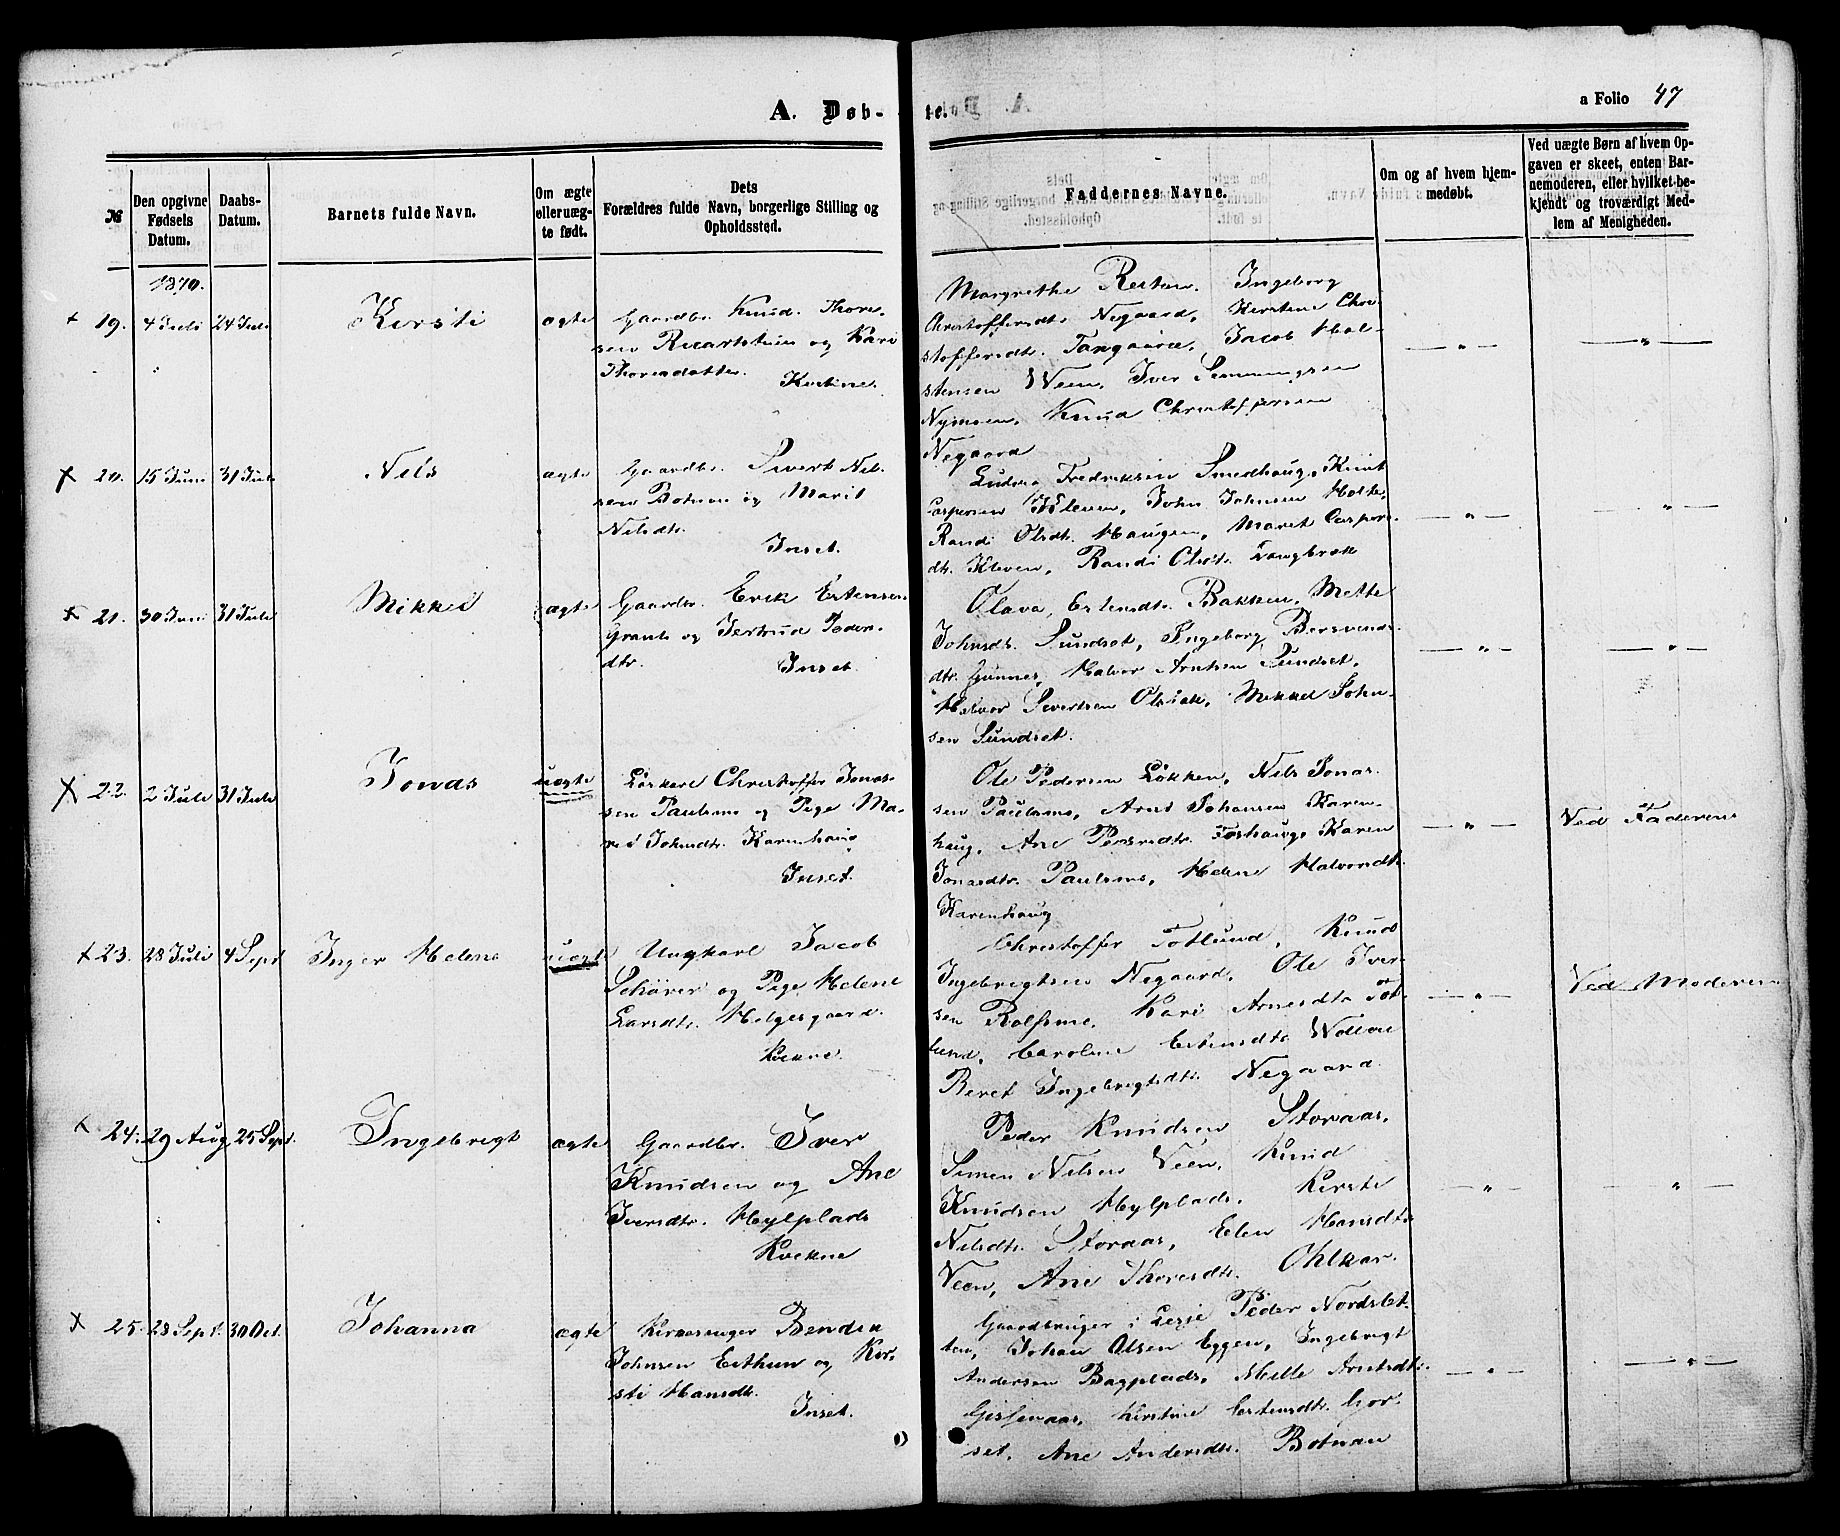 A. Døb-
te.
a Folio 47
№
Den opgivne Fødsels Datum.
Daabs-Datum.
Barnets fulde Navn.
Om ægte eller uægte født.
Dets
Forældres fulde Navn, borgerlige Stilling og
Opholdssted.
Faddernes Navne.
Om og af hvem hjem-
medøbt.
Ved uægte Børn af hvem Op-
gaven er skeet, enten Bar-
nemoderen, eller hvilket be-
kjendt og troværdigt Med-
lem af Menigheden.
1870.
19. 4 Juli 24 Juli Kirsti ægte Gaardbr. Knud Thore-
sen og Kari
Thoresdatter.
Margrethe Ingeborg
Christoffersdtr. Negaard, Kirstine Chri-
stoffersdtr. Jacob Hol-
stensen Veen, Iver Simmingsen
Nymoen, Knud Christoffersen
Negaard
20. 15 Juni 31 Juli Nils ægte Gaardbr. Sivert Nil-
sen og Marit
Nilsdtr.
Inset.
Fredriksen Smedhaug,
Caspersen Kleven, John Johnsen Holte,
Randi Olsdtr. Haugen, Maret Caspers-
dtr. Kleven, Randi Olsdtr.
21. 30 Juni 31 Juli Mikkel ægte Gaardbr. Erik Estensen
Grant og Gertrud Peders-
dtr.
Inset.
Olava Estensdtr. Bakken, Mette
Johnsdtr. Sundset, Ingeborg Bersvends-
dtr. Gunnes, Halvor Arntsen Sundset,
Halvor Sivertsen Mikkel John-
sen Sundset.
22. 2 Juli 31 Juli Jonas uægte Christoffer Jonas-
sen Paulsmo og Pige Ma-
rit Johnsdtr. Karenhaug
Inset.
Ole Pedersen Løkken, Nils Jonas-
sen Paulsmo, Arnt Johansen Karen-
haug, Ane Karen
Jonasdtr. Paulsmo, Helene Halvorsdtr.
Karenhaug
Ved Faderen
23. 28 Juli 4 Sept Inger Helene uægte Ungkarl Jacob
Schører og Pige Helene
Larsdtr. Helgesgaard.
Kvikne.
Christoffer Totlund, Knud
Ingebrigtsen Negaard, Ole Iver-
sen Rolfsmo, Kari Arnesdtr. Tot-
lund, Caroline Estensdtr.
Beret Ingebrigtsdtr. Negaard.
Ved Moderen
24. 29 Aug 25 Sept. Ingebrigt ægte Gaardbr. Iver
Knudsen og Ane
Iversdtr. Hylplads
Kvikne
Peder Knudsen Storaas,
Simen Nilsen Veen, Knud
Knudsen Hylplads, Kirsti
Nilsdtr. Storaas, Elen Hansdtr.
Veen, Ane Thoresdtr.
25. 28 Sept. 30 Oct. Johanna ægte Kirkesanger Bendik
Johnsen Erthun og Kir-
sti Hansdtr.
Inset.
Gaardbruger i Peder Nordslet-
ten, Johan Olsen Eggen, Ingebrigt
Andersen Bagplads, Arntsdtr.
Kirstine Estensdtr.
set, Ane Andersdtr. Botnan